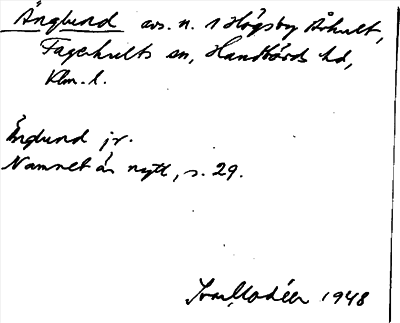 Änglund avs. n. 1 Högsby Århult,
Fagerhults sn, Handbörds hd,
Klm. l.
Änglund jr.
Namnet är nytt, s. 29.
Ivar Modéer 1948